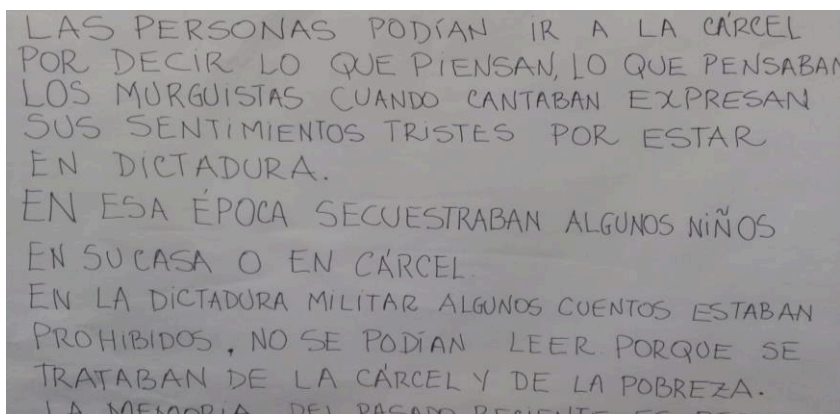 LAS PERSONAS PODÍAN IR A LA CÁRCEL
POR DECIR LO QUE PIENSAN, LO QUE PENSABAN
LOS MURGUISTAS CUANDO CANTABAN EXPRESAN
SUS SENTIMIENTOS TRISTES POR ESTAR
EN DICTADURA.
EN ESA ÉPOCA SECUESTRABAN ALGUNOS NIÑOS
EN SU CASA O EN CÁRCEL.
EN LA DICTADURA MILITAR ALGUNOS CUENTOS ESTABAN
PROHIBIDOS, NO SE PODÍAN LEER PORQUE SE
TRATABAN DE LA CÁRCEL Y DE LA POBREZA.
LA MEMORIA DEL PASADO RECIENTE ES